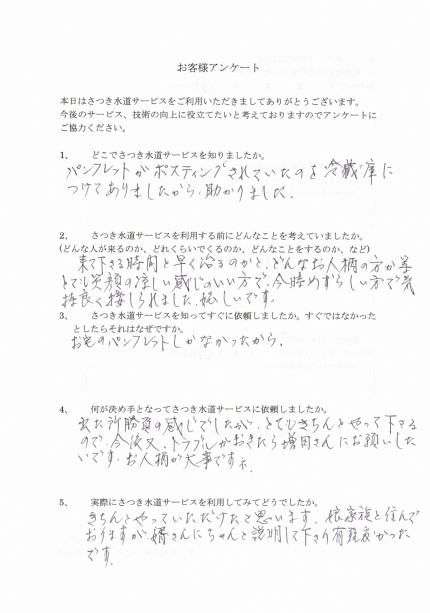 お客様アンケート
本日はさつき水道サービスをご利用いただきましてありがとうございます。
今後のサービス、技術の向上に役立てたいと考えておりますのでアンケートに
ご協力ください。
1、 どこでさつき水道サービスを知りましたか。
パンフレットがポスティングされていたのを冷蔵庫に
つけてありましたから、助かりました.
2、 さつき水道サービスを利用する前にどんなことを考えていましたか。
(どんな人が来るのか、どれくらいでくるのか、どんなことをするのか、など)
来て下さる時間と早く治るのかと、どんなお人柄の方か等
とても笑顔の涼しい感じのいい方で、今時めずらしい方で気
持良く接しられました、嬉しいです.
3、 さつき水道サービスを知ってすぐに依頼しましたか。すぐではなかった
としたらそれはなぜですか。
お宅のパンフレットしかなかったから.
4、 何が決め手となってさつき水道サービスに依頼しましたか。
出た所勝負の感じでしたが、とてもきちんとやって下さる
ので、今後又、トラブルがおきたら増田さんにお願いした
いです、お人柄が大事ですネ.
5、 実際にさつき水道サービスを利用してみてどうでしたか。
きちんとやっていただけたと思います、娘家族と住んで
おりますが婿さんにちゃんと説明して下さり有難かった
です.